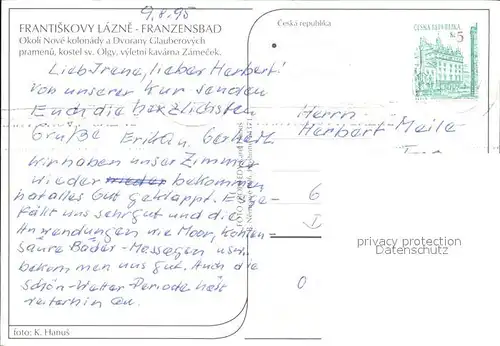 9.8.95
FRANTIŠKOVY LÁZNĚ - FRANZENSBAD
Okolí Nové kolonády a Dvorany Glauberových
pramenů, kostel sv. Olgy, výletní kavárna Zámeček.
Lieb Irene, lieber Herbert!
Von unserer Kur senden
Euch die herzlichsten
Grüße Erika u. Gerhard.
Wir haben unser Zimmer
wieder wieder bekommen
hat alles Gut geklappt. Es ge-
fällt uns sehr gut und die
Anwendungen wie Moor, Kohlen-
säure Bäder-Massagen usw.
bekommen uns gut. Auch die
schön-Wetter-Periode hält
weiterhin an.
foto: K. Hanuš
Česká republika
ČESKÁ REPUBLIKA
Kč 5
Herrn
Herbert Meile
6
0
privacy protection
Datenschutz